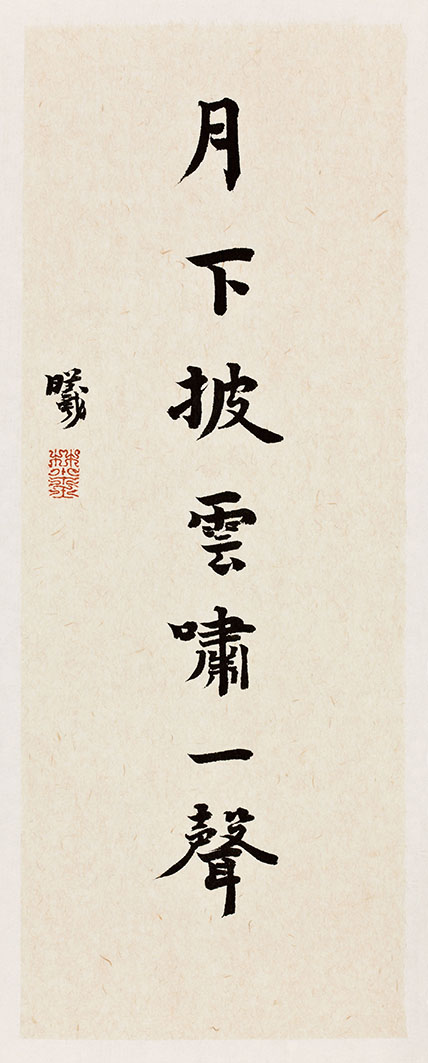 月下披雲嘯一聲
曦